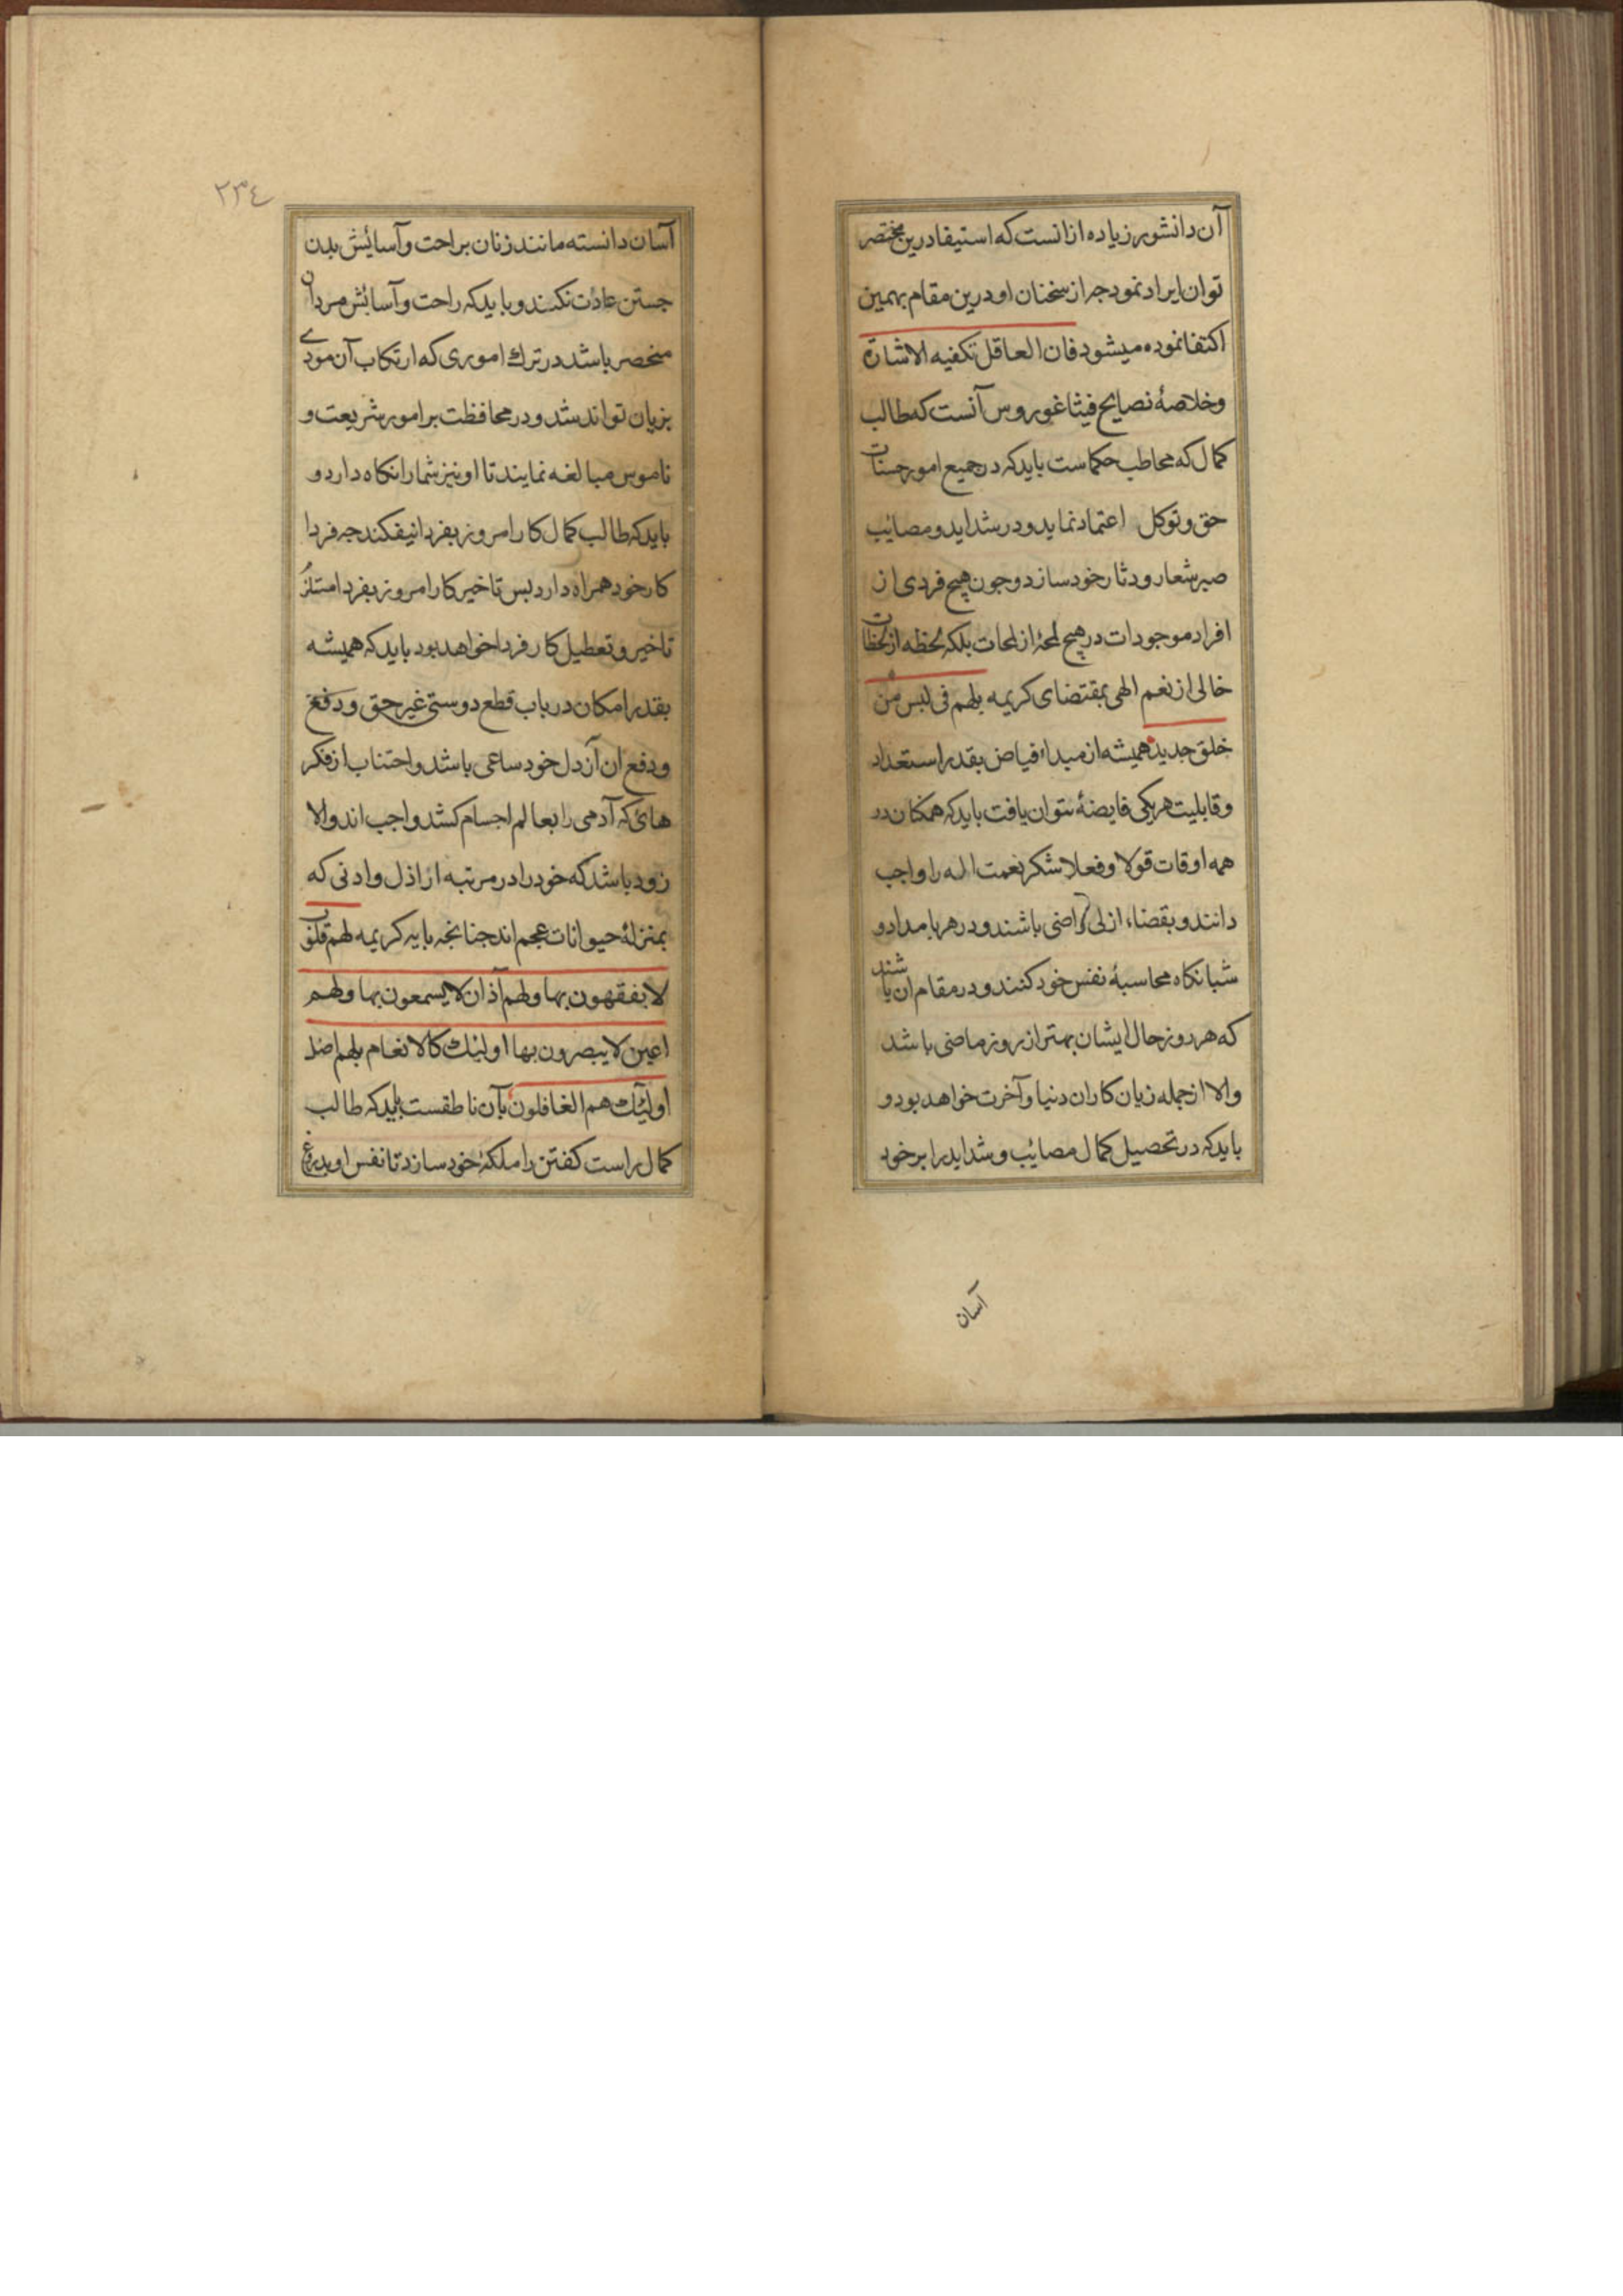 آن دانشور زیاده ازانست که استیفا درین مختصر
توان ایراد نمود جه از سخنان او درین مقام بهمین
اکتفا نموده میشود فان العاقل تکفیه الاشارة
وخلاصهٔ نصایح فیثاغوروس آنست که طالب
کمال که مخاطب حکماست باید که در جمیع امور حسنات
حق و توکل اعتماد نماید و در شداید و مصائب
صبر شعار و دثار خود سازد و جون هیج فردی از
افراد موجودات در هیج لمحهٔ از لمحات بلکه لحظه از لحظات
خالی از نعم الهی بمقتضای کریمه بلهم فی لبس من
خلق جدید همیشه از مبداء فیاض بقدر استعداد
و قابلیت هر یکی فایضهٔ نتوان یافت باید که همکان در
همه اوقات قولا و فعلا شکر نعمت اله را واجب
دانند و بقضاء ازلی راضی باشند و در هر بامداد و
شبانکاه محاسبهٔ نفس خود کنند و در مقام ان باشند
که هر روز حال ایشان بهتر از روز ماضی باشد
والا از جمله زیان کاران دنیا و آخرت خواهد بود و
باید که در تحصیل کمال مصائب و شداید را بر خود
آسان
۲۳٤
آسان دانسته مانند زنان براحت و آسائیش بدن
جستن عادت نکنند و باید که راحت و آسائش مردان
منحصر باشد در ترك اموری که ارتکاب آن مودی
بزیان تواند شد و در محافظت بر امور شریعت و
ناموس مبالغه نمایند تا او نیز شما را نکاه دارد و
باید که طالب کمال کار امروز بفردا نیفکند جه فردا
کار خود همراه دارد بس تاخیر کار امروز بفردا مستلزم
تاخیر و تعطیل کار فردا خواهد بود باید که همیشه
بقدر امکان در باب قطع دوستی غیر حق و دفع
و دفع ان از دل خود ساعی باشد و اجتناب از فکر
هائ که آدمی را بعالم اجسام کشد واجب اند والا
زود باشد که خود را در مرتبه ارذل و ادنی که
بمنزلهٔ حیوانات عجم اند جنانجه بایه کریمه لهم قلوب
لا یفقهون بها ولهم آذان لا یسمعون بها ولهم
اعین لا یبصرون بها اولئك کالانعام بلهم اضل
اولئك هم الغافلون بآن ناطقست باید که طالب
کمال راست کفتن را ملکهٔ خود سازد تا نفس او بدروغ